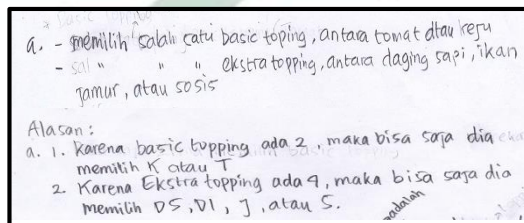 a. - memilih salah satu basic toping, antara tomat atau keju
- sal " " " ekstra topping, antara daging sapi, ikan
Jamur, atau sosis
Alasan :
a. 1. Karena basic topping ada 2, maka bisa saja dia
memilih K atau T
2. Karena Ekstra topping ada 4, maka bisa saja dia
memilih DS, DI, J, atau S.
adalah